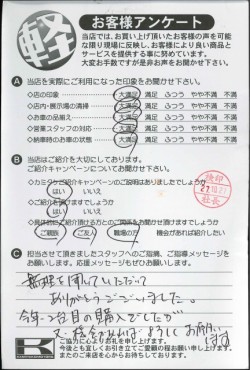 軽
お客様アンケート
当店では、お買い上げ頂いたお客様の声を可能
な限り現場に反映し、お客様により良い商品と
サービスを提供する事に努めています。
大変お手数ですが是非お声をお聞かせ下さい。
A 当店を実際にご利用になった印象をお聞かせ下さい。
◇店の印象 大満足 満足 ふつう やや不満 不満
◇店内・展示場の清掃 大満足 満足 ふつう やや不満 不満
◇お車の品揃え 大満足 満足 ふつう やや不満 不満
◇営業スタッフの対応 大満足 満足 ふつう やや不満 不満
◇納車時のお車の状態 大満足 満足 ふつう やや不満 不満
B 当店はご紹介を大切にしております。
ご紹介キャンペーンについてお聞かせ下さい。
◇カミタケご紹介キャンペーンのご説明はありましたでしょうか
はい いいえ
はい いいえ
ご親戚 ご友人 職場の方 機会があれば紹介したい
検印
社長
C 今回担当させて頂きましたスタッフへのご指摘、ご指導を
お願いします。応援メッセージもぜひお願いします。
無理を聞いていただいて
ありがとうございました。
今年、2台目の購入でしたが
又、機会があれば、よろしくお願い
します
K
ご協力に心よりお礼を申し上げます。
今後とも宜しくお引き立てご愛顧の程お願い申し上げます。
またのご来店を心からお待ちしております。